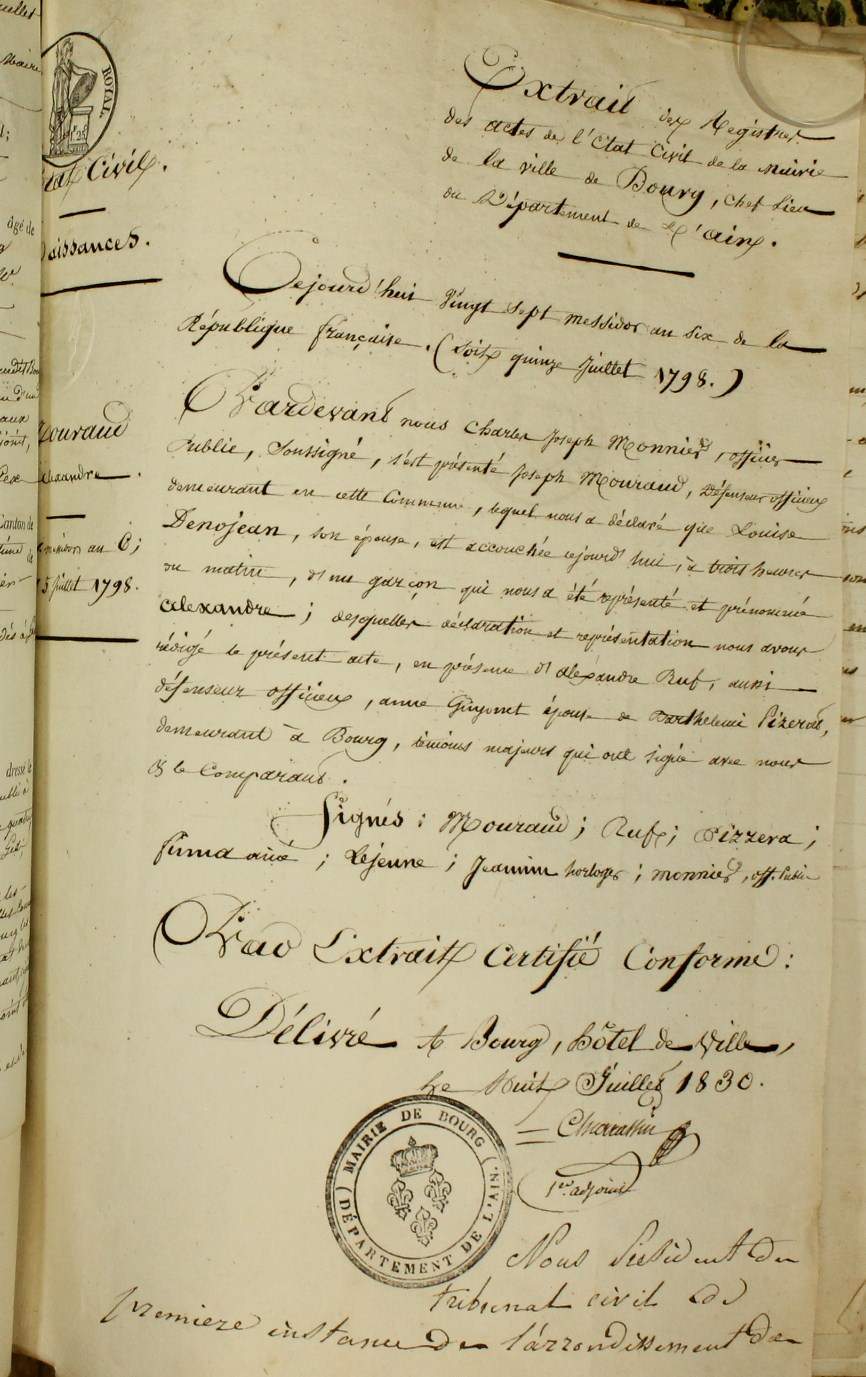 ROYAL.
Civil.
aissances.
ouraud
lexandre.
messidor an 6;
5 Juillet 1798.
Extrait des Registres
des actes de l'Etat Civil de la Mairie
de la ville de Bourg, Chef lieu
du Département de l'ain.
Cejourd'hui vingt sept messidor an six de la
République française. (soit quinze Juillet 1798.)
Pardevant nous Charles Joseph Monnier, officier
Public, Soussigné, s'est présenté Joseph Mouraud, Défenseur officieux
demeurant en cette Commune, lequel nous a déclaré que Louise
Denojean, son épouse, est accouchée cejourd'hui, à trois heures
du matin, d'un garçon qui nous a été représenté et prénommé
alexandre; desquelles déclaration et représentation nous avons
rédigé le présent acte, en présence d'alexandre Ruf, aussi
défenseur officieux, anne Guyonnet épouse de Barthelemi Pizerat,
demeurant à Bourg, témoins majeurs qui ont signé avec nous
& le Comparant.
Signés: Mouraud; Ruf; Pizzera;
ainé; Lejeune; Jeannin horloger; monnier, off. Public
Pour Extrait Certifié Conforme:
Délivré A Bourg, hôtel de Ville,
Le Huit Juillet 1830.
1er adjoint
MAIRIE DE BOURG
(DÉPARTEMENT DE L'AIN.)
Nous President du
tribunal civil de
premiere instance de l'arrondissement de